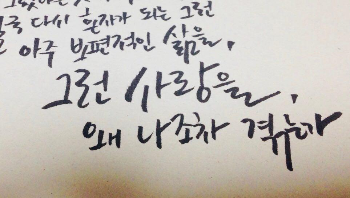 다시 혼자가 되는 그런
아주 보편적인 삶을,
그런 사랑을,
왜 나조차 겪는가